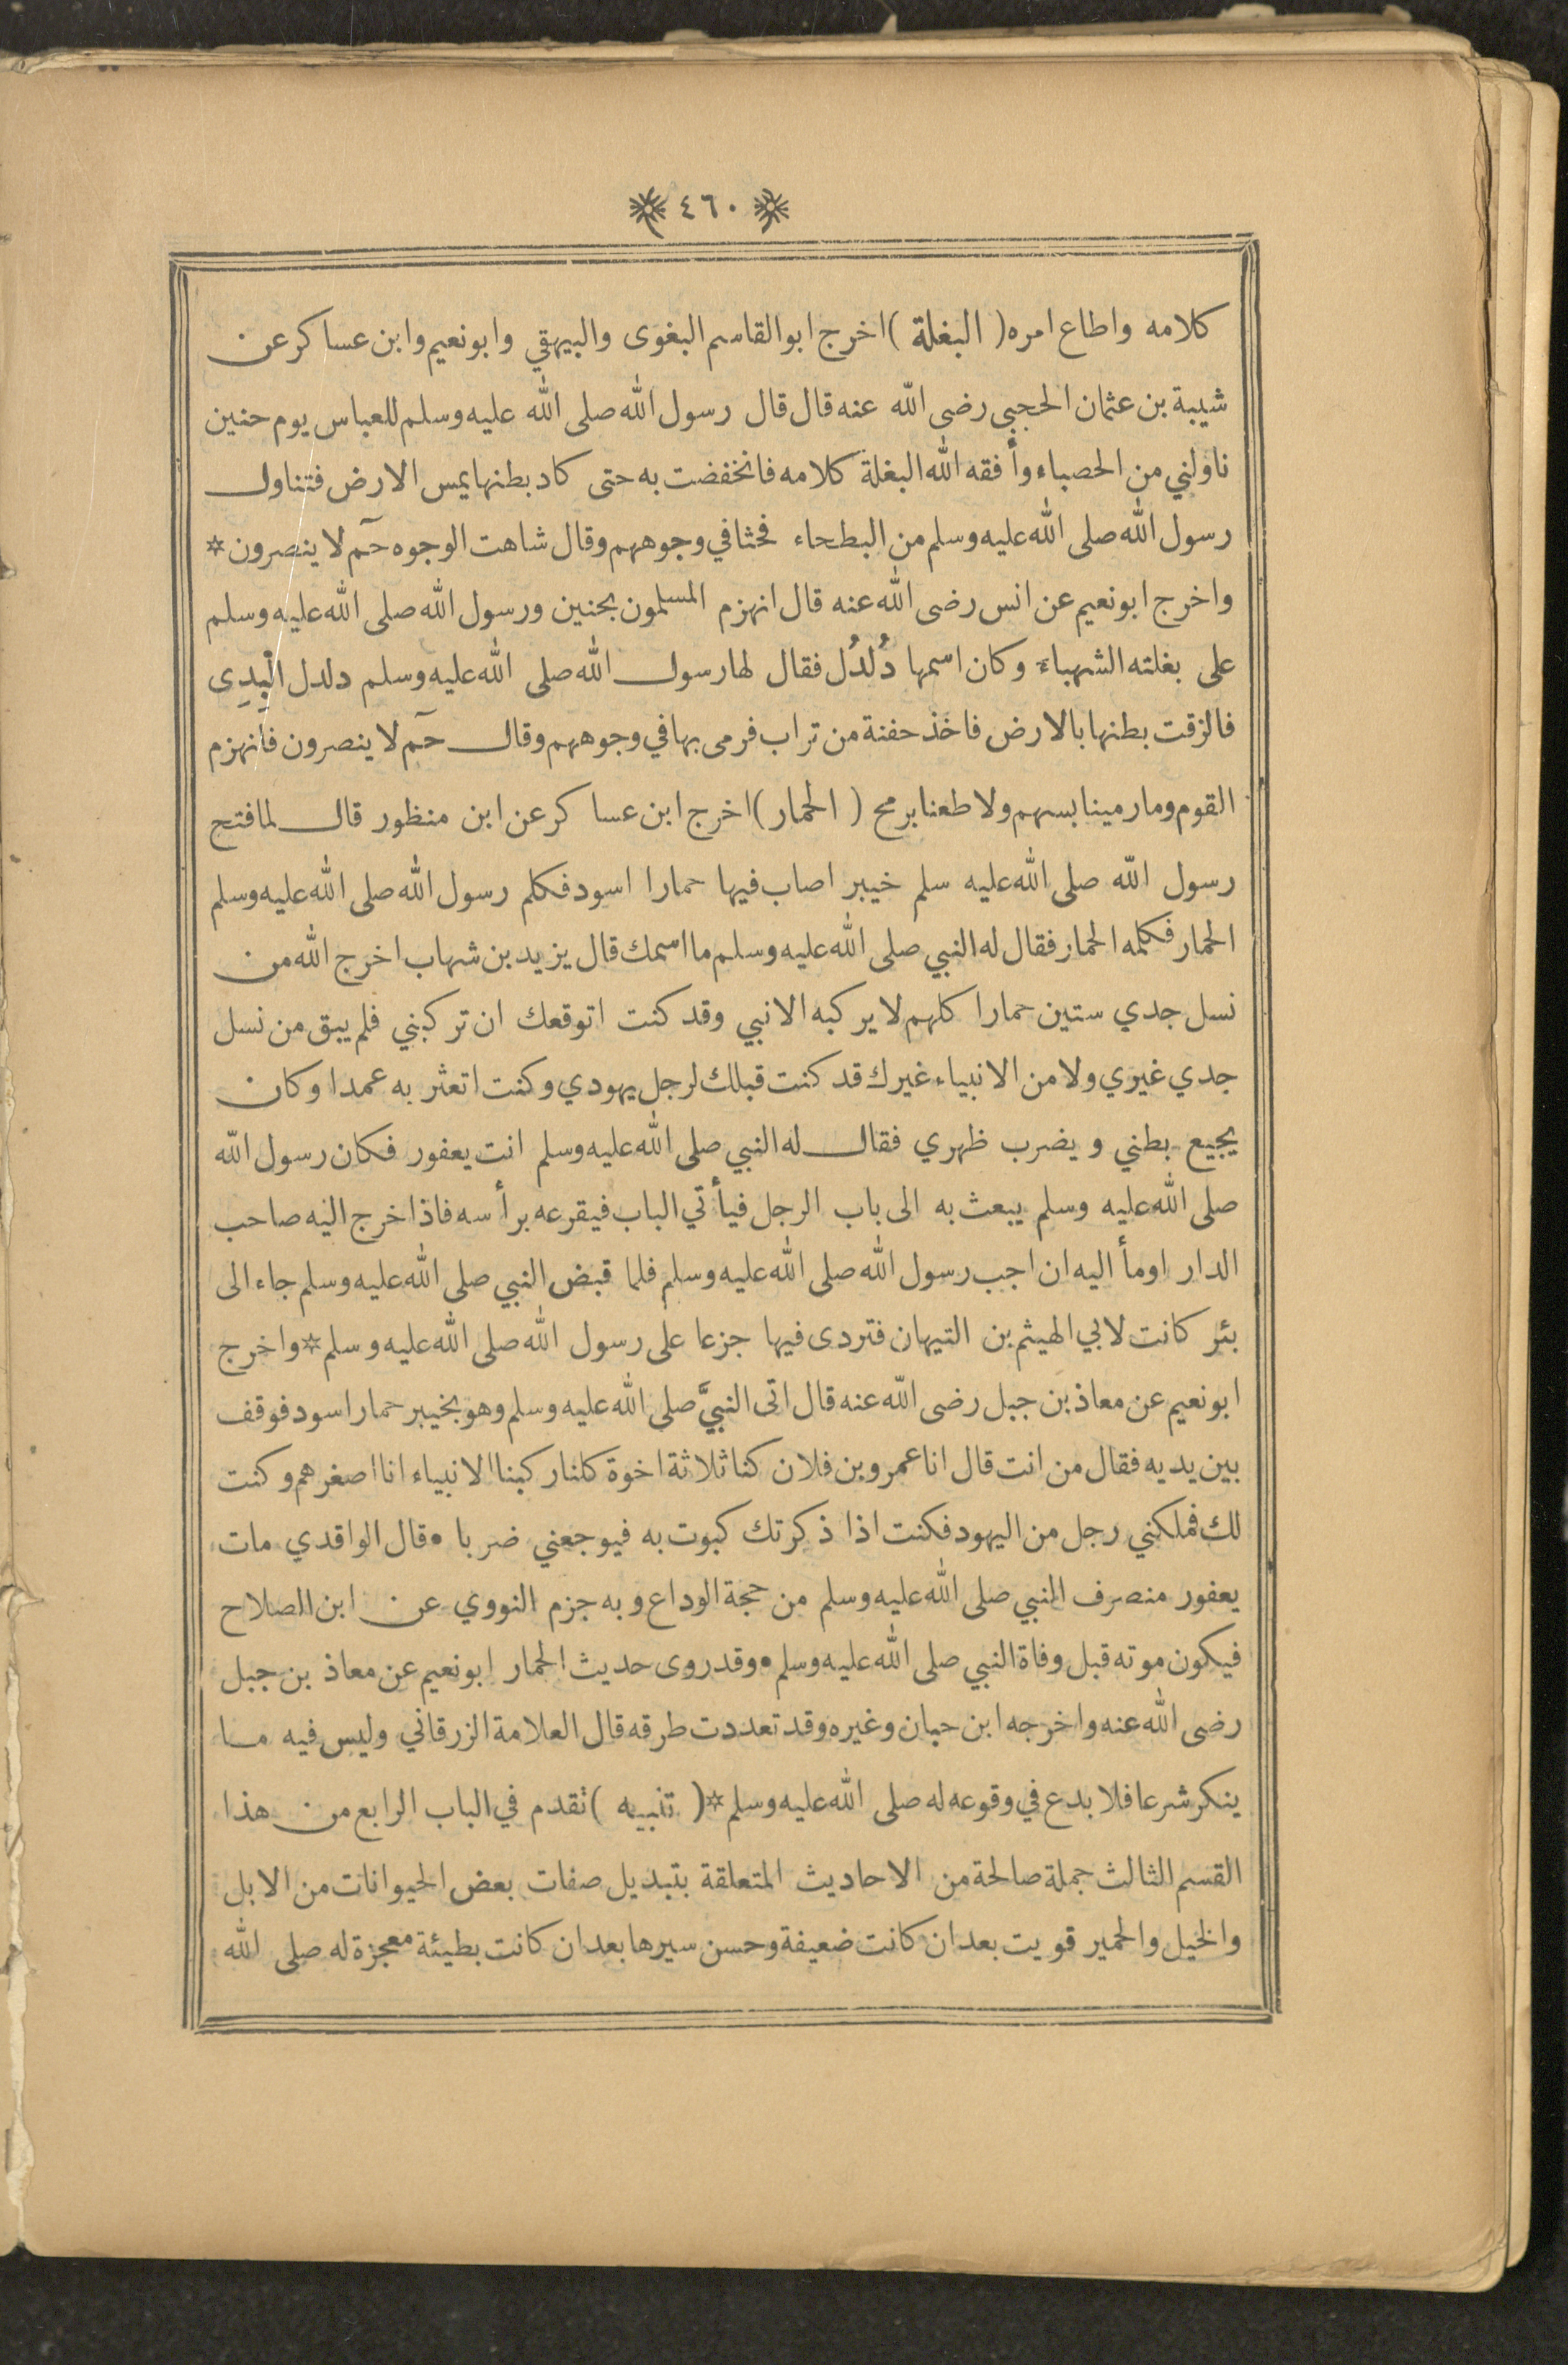 ٤٦٠
كلامه واطاع امره ( البغلة ) اخرج ابو القاسم البغوى والبيهقي وابو نعيم وابن عساكر عن
شيبة بن عثمان الحجبي رضى الله عنه قال قال رسول الله صلى الله عليه وسلم للعباس يوم حنين
ناولني من الحصباء وأفقه الله البغلة كلامه فانخفضت به حتى كاد بطنها يمس الارض فتناول
رسول الله صلى الله عليه وسلم من البطحاء فحثا في وجوههم وقال شاهت الوجوه حٓم لا ينصرون *
واخرج ابو نعيم عن انس رضى الله عنه قال انهزم المسلمون بحنين ورسول الله صلى الله عليه وسلم
على بغلته الشهباء وكان اسمها دُلدُل فقال لها رسول الله صلى الله عليه وسلم دلدل الْبِدِى
فالزقت بطنها بالارض فاخذ حفنة من تراب فرمى بها في وجوههم وقال حٓم لا ينصرون فانهزم
القوم وما رمينا بسهم ولا طعنا برمح ( الحمار ) اخرج ابن عساكر عن ابن منظور قال لما فتح
رسول الله صلى الله عليه سلم خيبر اصاب فيها حمارا اسود فكلم رسول الله صلى الله عليه وسلم
الحمار فكلمه الحمار فقال له النبي صلى الله عليه وسلم ما اسمك قال يزيد بن شهاب اخرج الله من
نسل جدي ستين حمارا كلهم لا يركبه الا نبي وقد كنت اتوقعك ان تركبني فلم يبق من نسل
جدي غيري ولا من الانبياء غيرك قد كنت قبلك لرجل يهودي وكنت اتعثر به عمدا وكان
يجيع بطني ويضرب ظهري فقال له النبي صلى الله عليه وسلم انت يعفور فكان رسول الله
صلى الله عليه وسلم يبعث به الى باب الرجل فيأتي الباب فيقرعه برأسه فاذا خرج اليه صاحب
الدار اومأ اليه ان اجب رسول الله صلى الله عليه وسلم فلما قبض النبي صلى الله عليه وسلم جاء الى
بئر كانت لابي الهيثم بن التيهان فتردى فيها جزعا على رسول الله صلى الله عليه وسلم * واخرج
ابو نعيم عن معاذ بن جبل رضى الله عنه قال اتى النبيَّ صلى الله عليه وسلم وهو بخيبر حمار اسود فوقف
بين يديه فقال من انت قال انا عمرو بن فلان كنا ثلاثة اخوة كلنا ركبنا الانبياء انا اصغرهم وكنت
لك فملكني رجل من اليهود فكنت اذا ذكرتك كبوت به فيوجعني ضربا • قال الواقدي مات
يعفور منصرف النبي صلى الله عليه وسلم من حجة الوداع وبه جزم النووي عن ابن الصلاح
فيكون موته قبل وفاة النبي صلى الله عليه وسلم • وقد روى حديث الحمار ابو نعيم عن معاذ بن جبل
رضى الله عنه واخرجه ابن حبان وغيره وقد تعددت طرقه قال العلامة الزرقاني وليس فيه ما
ينكر شرعا فلا بدع في وقوعه له صلى الله عليه وسلم * ( تنبيه ) تقدم في الباب الرابع من هذا
القسم الثالث جملة صالحة من الاحاديث المتعلقة بتبديل صفات بعض الحيوانات من الابل
والخيل والحمير قويت بعد ان كانت ضعيفة وحسن سيرها بعد ان كانت بطيئة معجزة له صلى الله